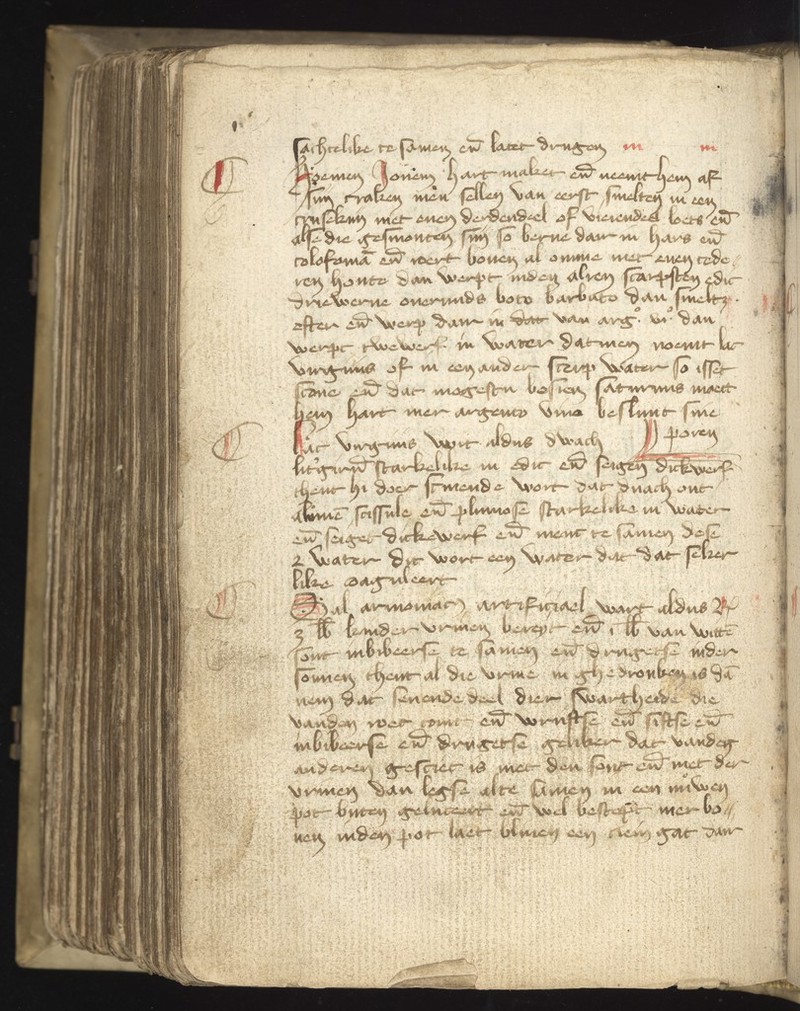 sachtelike te samen en̄ latet drugen
Noemen Jouem hart maket en̄ neemt hem af
sijn craken men sellen van eerst smelten in een
cruselkijn met enen derdendeel of vierendeel loets en̄
alse die gesmouten sijn so berne dair in hars en̄
colofoniā en̄ roert bouen al omme met enen cede
ren houte dan werpt inden alren scarpsten edic
driewerue ouermids boto barbato dan smeltz
efter en̄ werp dair in dat van arg° vi° dan
werpt twewerf in water datmen noemt lac
virginis of in een ander scerp water so isset
scone en̄ dat mogestu besien saturnus maect
hem hart mer argento viuo beslunt sine
poren
Lac virginis wort aldus dwach
lit'girū starkelike in edic en̄ seigen dickwerf
thent hi doer scinende wort dat dnach out
alumē scissule en̄ plumose starkelike in water
en̄ seiget dickewerf en̄ ment te samen dese
2 water dit wort een water dat dat seker
like coaguleert
Sal armoniac artificiael wart aldus ℞
3 lb kinder vrinen berept en̄ i lb van wittē
sout inbibeerse te samen en̄ drugetse inder
sonnen thent al die vrine in ghedronken is dā
nem dat seuende deel dier swartheide die
vanden roet comt en̄ wrijftse en̄ siftse en̄
inbibeerse en̄ drugetse geliker dat vanden
anderen gesciet is met den sout en̄ met der
vrinen dan legse alte samen in een nuwen
pot buten geluteert en̄ wel bestopt mer bo
uen inden pot laet bliuen een clein gat dair